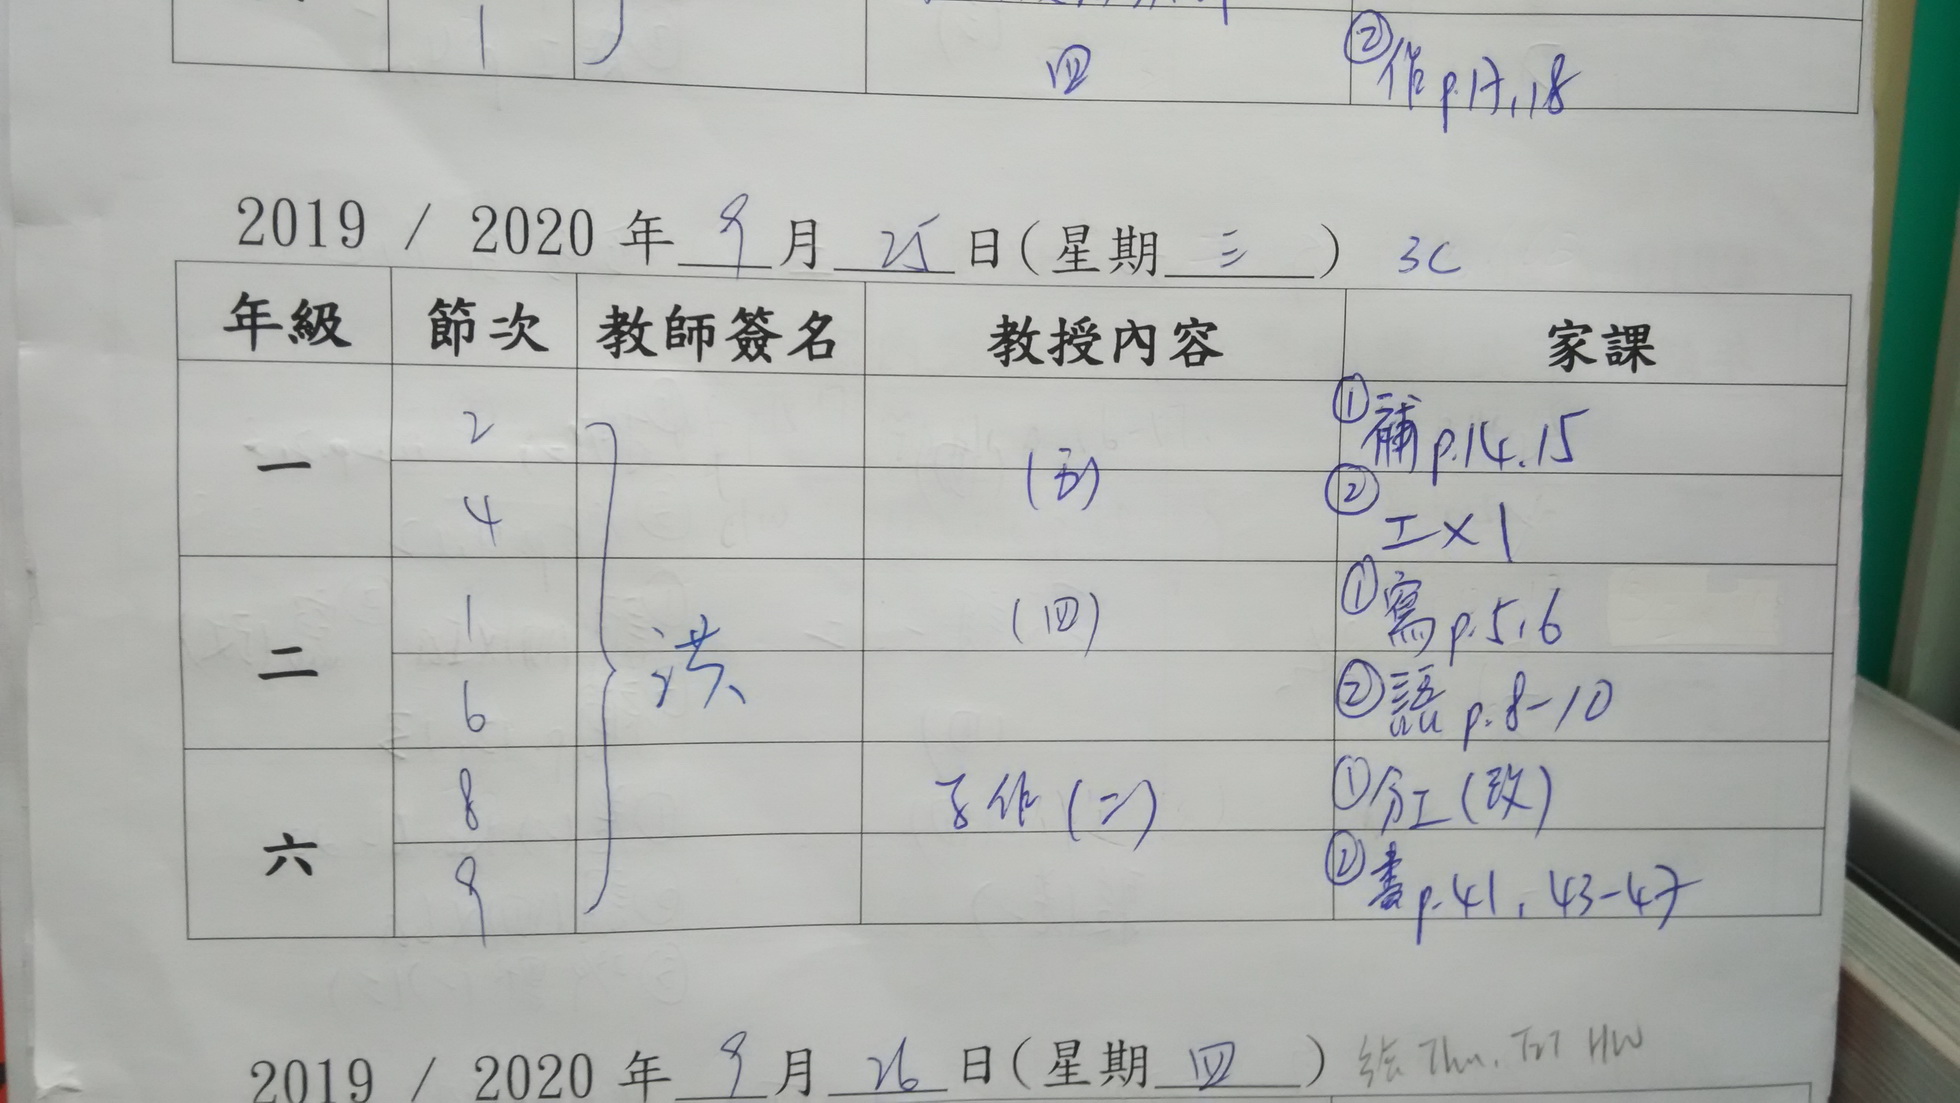 1 四 ②作p.17,18
2019 / 2020 年 9 月 25 日(星期 三 ) 3C
年級 節次 教師簽名 教授內容 家課
一 2 (五) ①補p.14.15
4 ②工×1
二 1 洪 (四) ①寫p.5,6
6 ②語p.8-10
六 8 作(二) ①工(改)
9 ②書p.41, 43-47
2019 / 2020 年 9 月 26 日(星期 四 ) Thu. HW